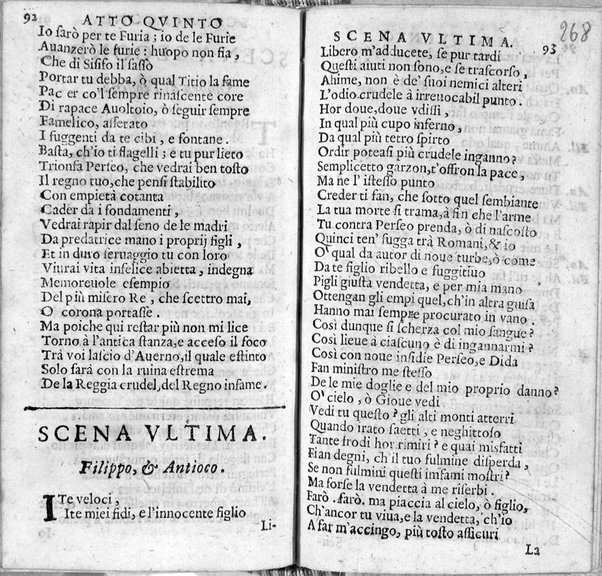 92 ATTO QVINTO
Io sarò per te Furia; io de le Furie
Avanzerò le furie: huopo non fia,
Che di Sisifo il sasso
Portar tu debba, ò qual Titio la fame
Pascer co'l sempre rinascente core
Di rapace Avoltoio, ò seguir sempre
Famelico, assetato
I fuggenti da te cibi, e fontane.
Basta, ch'io ti flagelli; e tu pur lieto
Trionfa Perseo, che vedrai ben tosto
Il regno tuo, che pensi stabilito
Con empietà cotanta
Cader da i fondamenti,
Vedrai rapir dal seno de le madri
Da predatrice mano i proprij figli,
Et in duro servaggio tu con loro
Viurai vita infelice abietta, indegna
Memoreuole esempio
Del più misero Re, che scettro mai,
O corona portasse.
Ma poiche qui restar più non mi lice
Torno à l'antica stanza, e acceso il foco
Trà voi lascio d'Auerno, il quale estinto
Solo sarà con la ruina estrema
De la Reggia crudel, del Regno infame.
SCENA VLTIMA.
Filippo, & Antioco.
ITe veloci,
Ite miei fidi, e l'innocente figlio
Li-
SCENA VLTIMA. 93
268
Libero m'adducete, se pur tardi
Questi aiuti non sono, e se trascorso,
Ahime, non è de' suoi nemici alteri
L'odio crudele à irreuocabil punto.
Hor doue, doue vdissi,
In qual più cupo inferno,
Da qual più tetro spirto
Ordir poteasi più crudele inganno?
Semplicetto garzon, t'offron la pace,
Ma ne l'istesso punto
Creder ti fan, che sotto quel sembiante
La tua morte si trama, à fin che l'arme
Tu contra Perseo prenda, ò di nascosto
Quinci ten' fugga trà Romani, & io
O' qual da autor di noue turbe, ò come
Da te figlio ribello e fuggitiuo
Pigli giusta vendetta, e per mia mano
Ottengan gli empi quel, ch'in altra guisa
Hanno mai sempre procurato in vano.
Così dunque si scherza col mio sangue?
Così lieue à ciascuno è di ingannarmi?
Così con noue insidie Perseo, e Dida
Fan ministro me stesso
De le mie doglie e del mio proprio danno?
O' cielo, ò Gioue vedi
Vedi tu questo? gli alti monti atterri
Quando irato saetti, e neghittoso
Tante frodi hor rimiri? e quai misfatti
Fian degni, ch'il tuo fulmine disperda,
Se non fulmini questi infami mostri?
Ma forse la vendetta à me riserbi.
Farò, farò. ma piaccia al cielo, ò figlio,
Ch'ancor tu viua, e la vendetta, ch'io
A far m'accingo, più tosto assicuri
L2